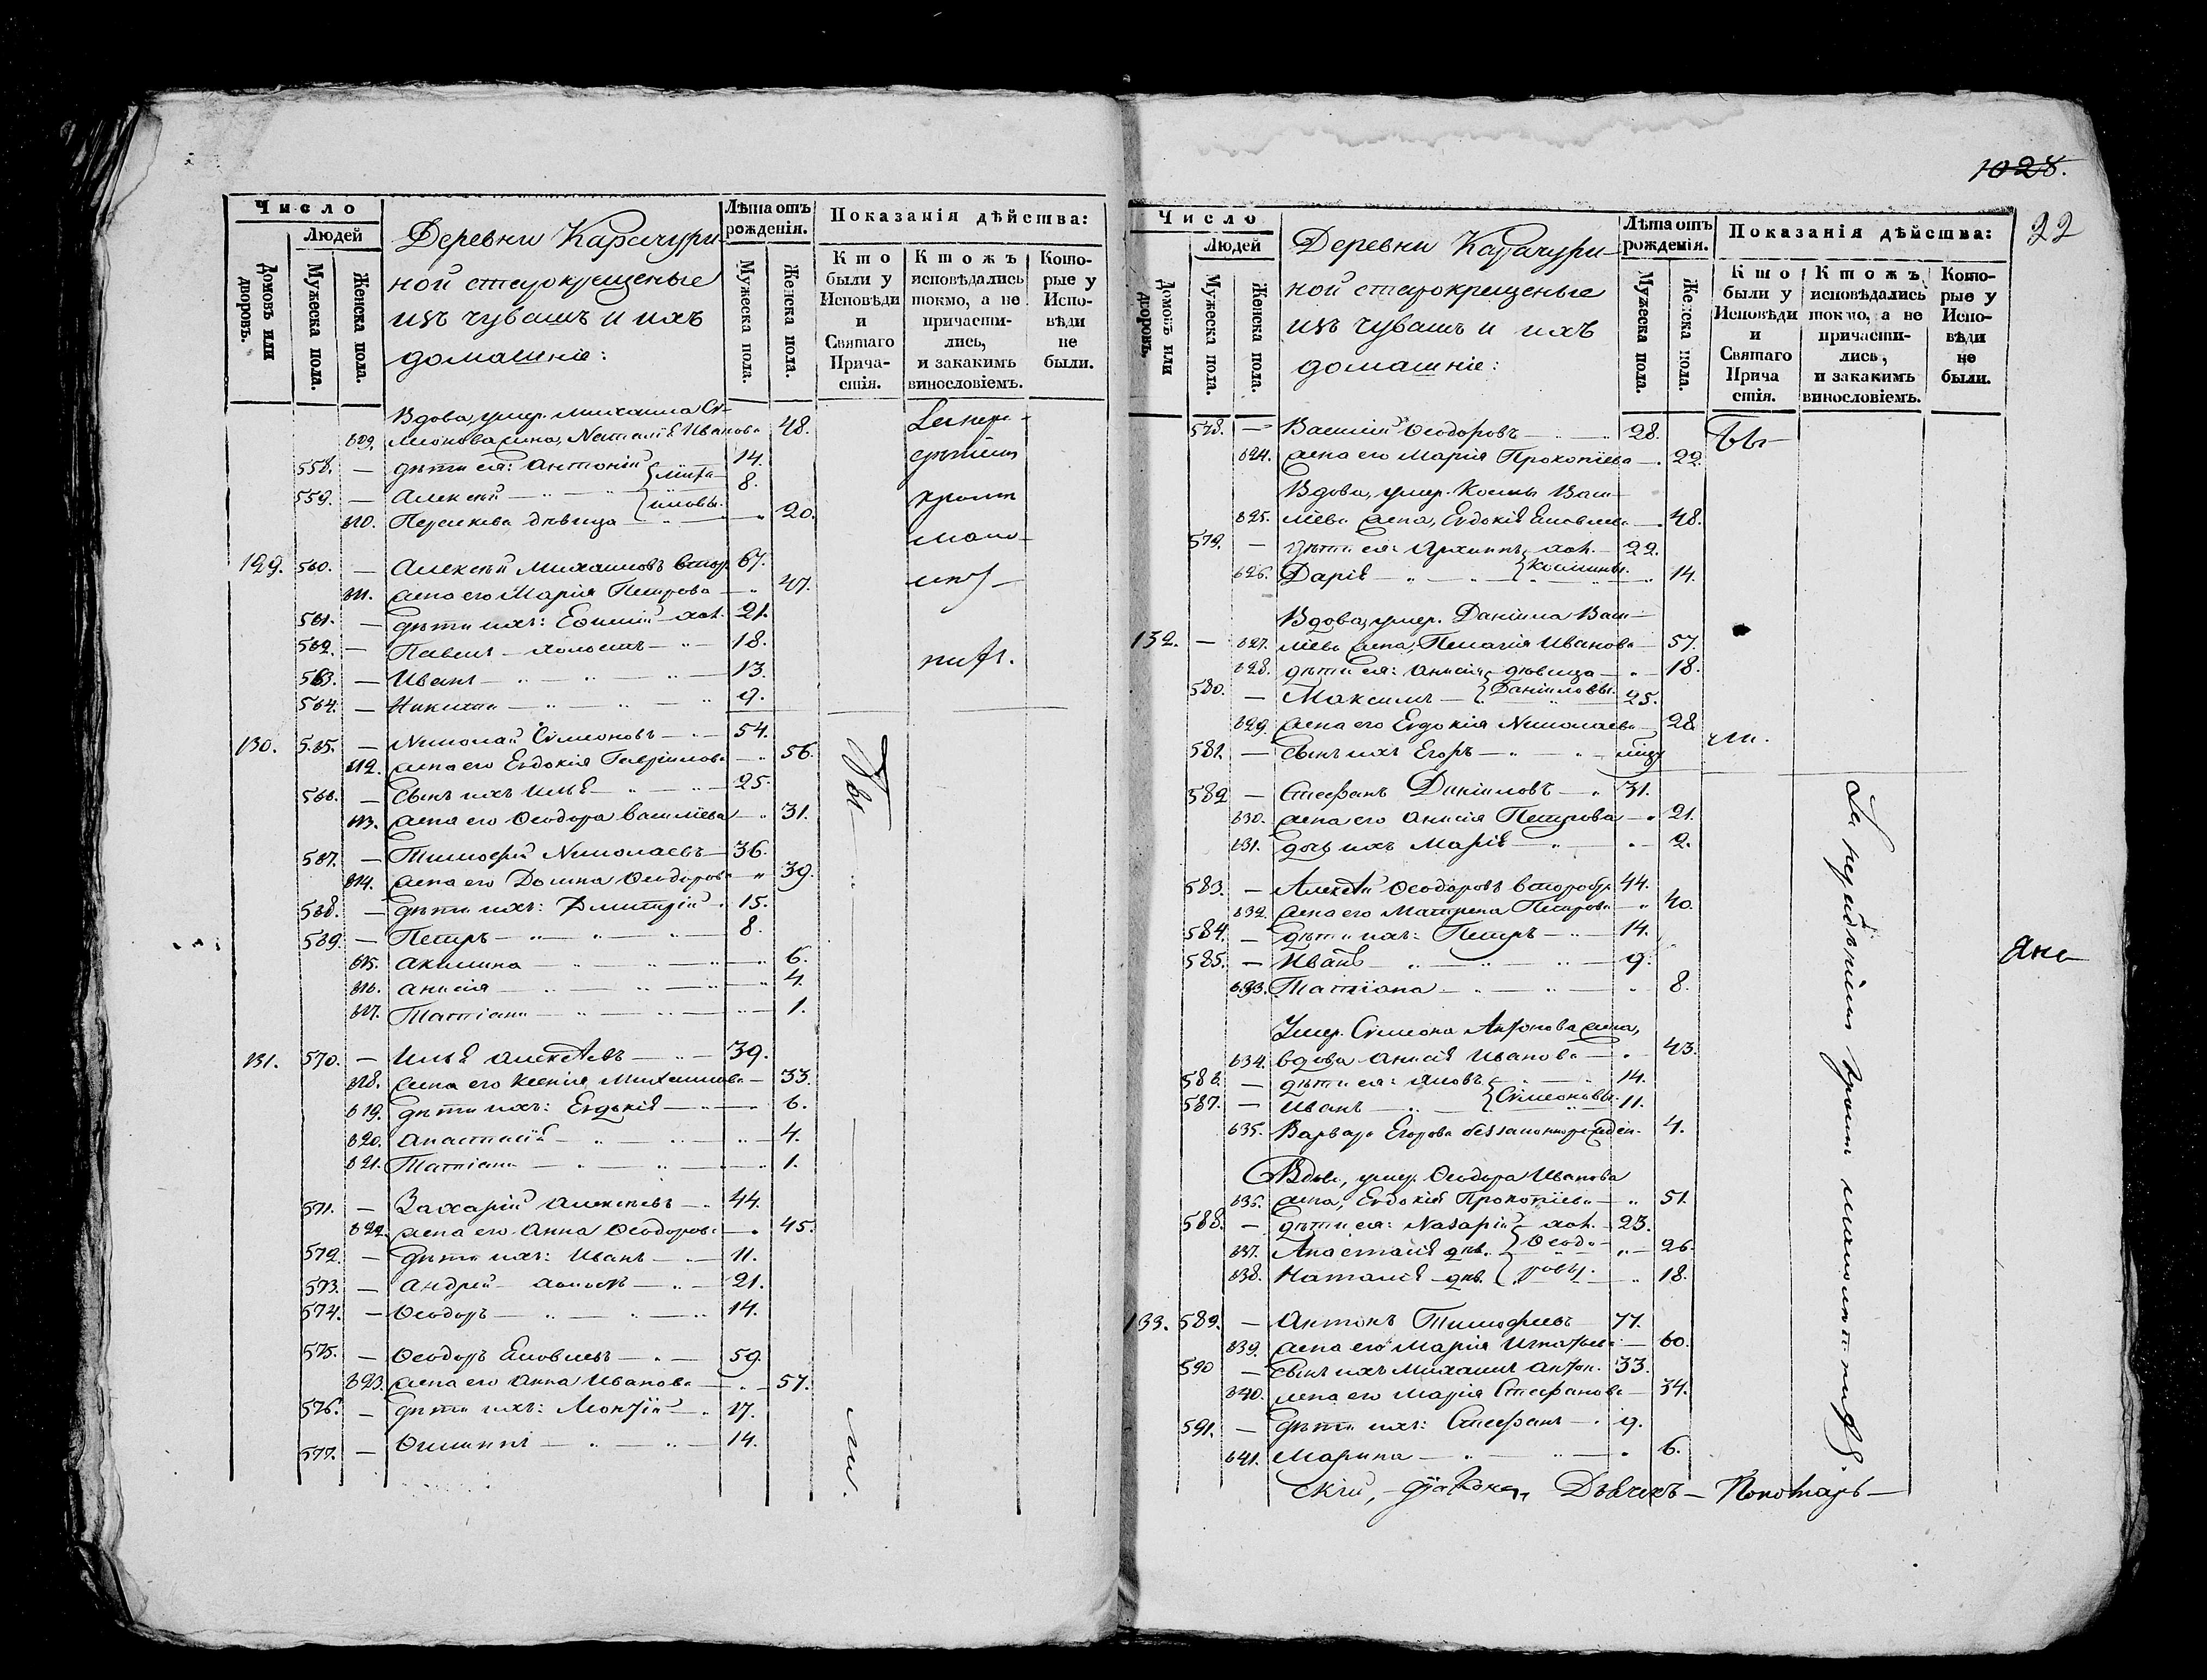 Число
Людей
Домовъ или дворовъ.
Мужеска пола.
Женска пола.
Деревни Карачури-
ной старокрещеные
изъ чувашъ и ихъ
домашніе:
Лѣта отъ рожденія.
Мужеска пола.
Женска пола.
Показанія дѣйства:
Кто были у Исповѣди и Святаго Причастія.
Ктожъ исповѣдались токмо, а не причастились, и закакимъ винословіемъ.
Которые у Исповѣди не были.
Вдова, умер. Михаила Си-
609. меонова жена, Наталія Иванова 48.
558. — дѣти ея: Антоній 14.
559. — Алексѣй 8.
610. Параскева дѣвица 20.
129. 560. — Алексѣй Михаиловъ 67.
611. жена его Марія Петрова 47.
561. — дѣти ихъ: Евѳимій хол. 21.
562. — Павелъ холостъ 18.
563. — Иванъ 13.
564. — 9.
130. 565. — Николай Симеоновъ 54.
612. жена его Евдокія Гавріилова 56.
566. — сынъ ихъ Илья 25.
613. жена его Ѳеодора Василіева 31.
567. — Тимофей Николаевъ 36.
614. жена его Домна Ѳеодорова 39.
568. — дѣти ихъ: Димитрій 15.
569. — Петръ 8.
615. Акилина 6.
616. Анисія 4.
617. Татіана 1.
131. 570. — Илья Алексѣевъ 39.
618. жена его Ксенія Михаилова 33.
619. дѣти ихъ: Евдокія 6.
620. Анастасія 4.
621. Татіана 1.
571. — Захарій Алексѣевъ 44.
622. жена его Анна Ѳеодорова 45.
572. — дѣти ихъ: Иванъ 11.
573. — Андрей холостъ 21.
574. — Ѳеодоръ 14.
575. — Ѳеодоръ Яковлевъ 59.
623. жена его Анна Иванова 57.
576. — дѣти ихъ: 17.
577. — Филиппъ 14.
1028.
22
Число
Людей
Домовъ или дворовъ.
Мужеска пола.
Женска пола.
Деревни Карачури-
ной старокрещеные
изъ чувашъ и ихъ
домашніе:
Лѣта отъ рожденія.
Мужеска пола.
Женска пола.
Показанія дѣйства:
Кто были у Исповѣди и Святаго Причастія.
Ктожъ исповѣдались токмо, а не причастились, и закакимъ винословіемъ.
Которые у Исповѣди не были.
578. — Василій Ѳеодоровъ 28.
624. жена его Марія Прокопіева 22.
Вдова, умер. Космы Васи-
625. ліева жена, Евдокія Яковлева 48.
579. — дѣти ея: Архиппъ хол. 22.
626. Дарія Космины 14.
Вдова, умер. Даніила Васи-
132. — 627. ліева жена, Пелагія Иванова 57.
628. дѣти ея: Анисія дѣвица 18.
580. — Максимъ Даніиловы 25.
629. жена его Евдокія Николаева 28.
581. — сынъ ихъ Егоръ
582. — Стефанъ Даніиловъ 31.
630. жена его Анисія Петрова 21.
631. дочь ихъ Марія 2.
583. — Алексѣй Ѳеодоровъ 44.
632. жена его Матрена Петрова 40.
584. — дѣти ихъ: Петръ 14.
585. — Иванъ 9.
633. Татіана 8.
Умер. Симеона Антонова жена,
634. вдова Анисія Иванова 43.
586. — дѣти ея: Яковъ 14.
587. — Иванъ Симеоновы 11.
635. Варвара Егорова 4.
Вдова, умер. Ѳеодора Иванова
636. жена, Евдокія Прокопіева 51.
588. — дѣти ея: Назарій хол. 23.
637. Анастасія дѣв. Ѳеодо- 26.
638. Наталія дѣв. ровы. 18.
133. 589. — Антонъ Тимофеевъ 77.
639. жена его Марія Игнатьева 60.
590 — сынъ ихъ Михаилъ Антон. 33.
640. жена его Марія Стефанова 34.
591. — дѣти ихъ: Стефанъ 9.
641. Марина 6.
скій, — Дьячекъ — Пономарь —